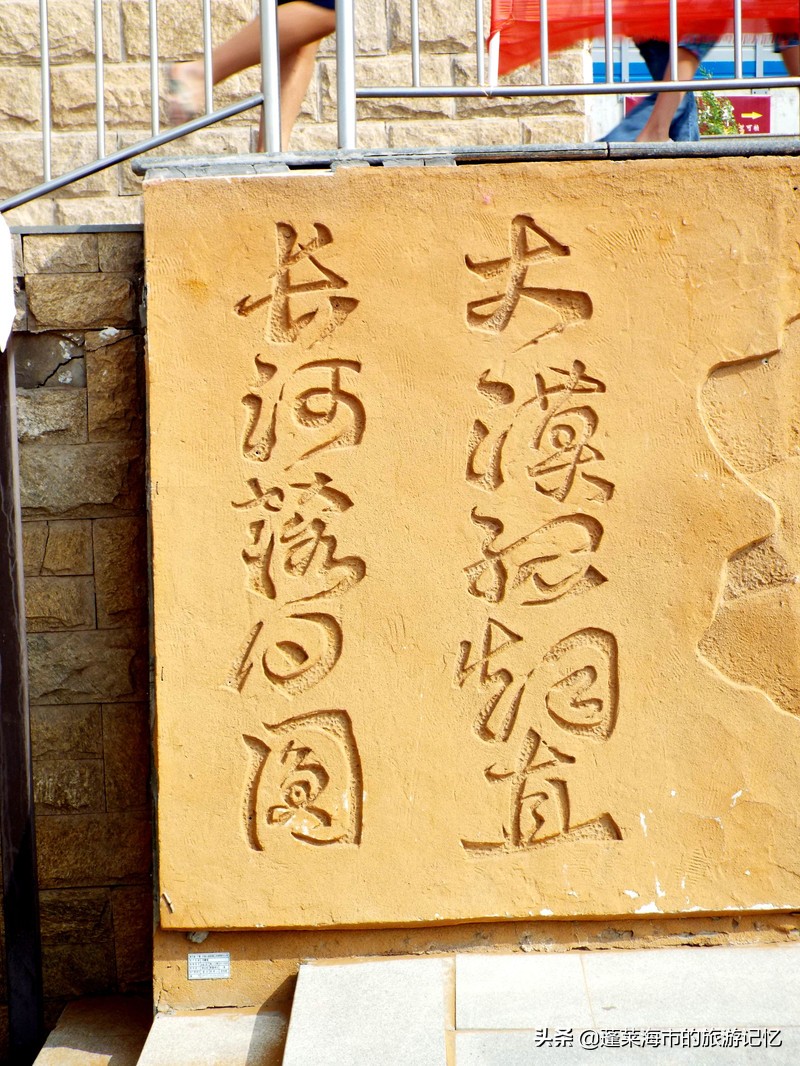 大漠孤烟直
长河落日圆
头条 @蓬莱海市的旅游记忆